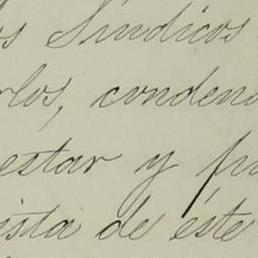 os Síndicos
rlos, conden
estar y p
ista de éste